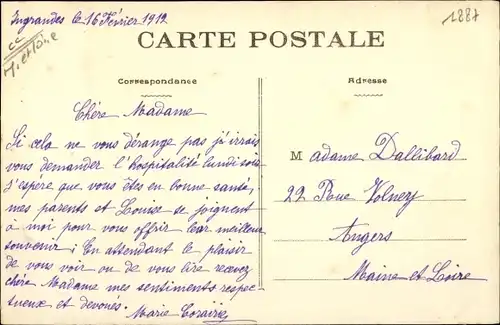 Ingrandes le 16 Février 1912
1887
CC
M. et Loire
CARTE POSTALE
Correspondance
Adresse
Chère Madame
Si cela ne vous dérange pas j'irrais
vous demander l'hospitalité lundi soir
J'espère que vous êtes en bonne santé,
mes parents et Louise se joignent
à moi pour vous offrir leur meilleur
souvenir ; En attendant le plaisir
de vous voir ou de vous lire recevez
chère Madame mes sentiments respec-
tueux et devoués.
Marie
Madame Dallibard
22 Rue Volney
Angers
Maine et Loire